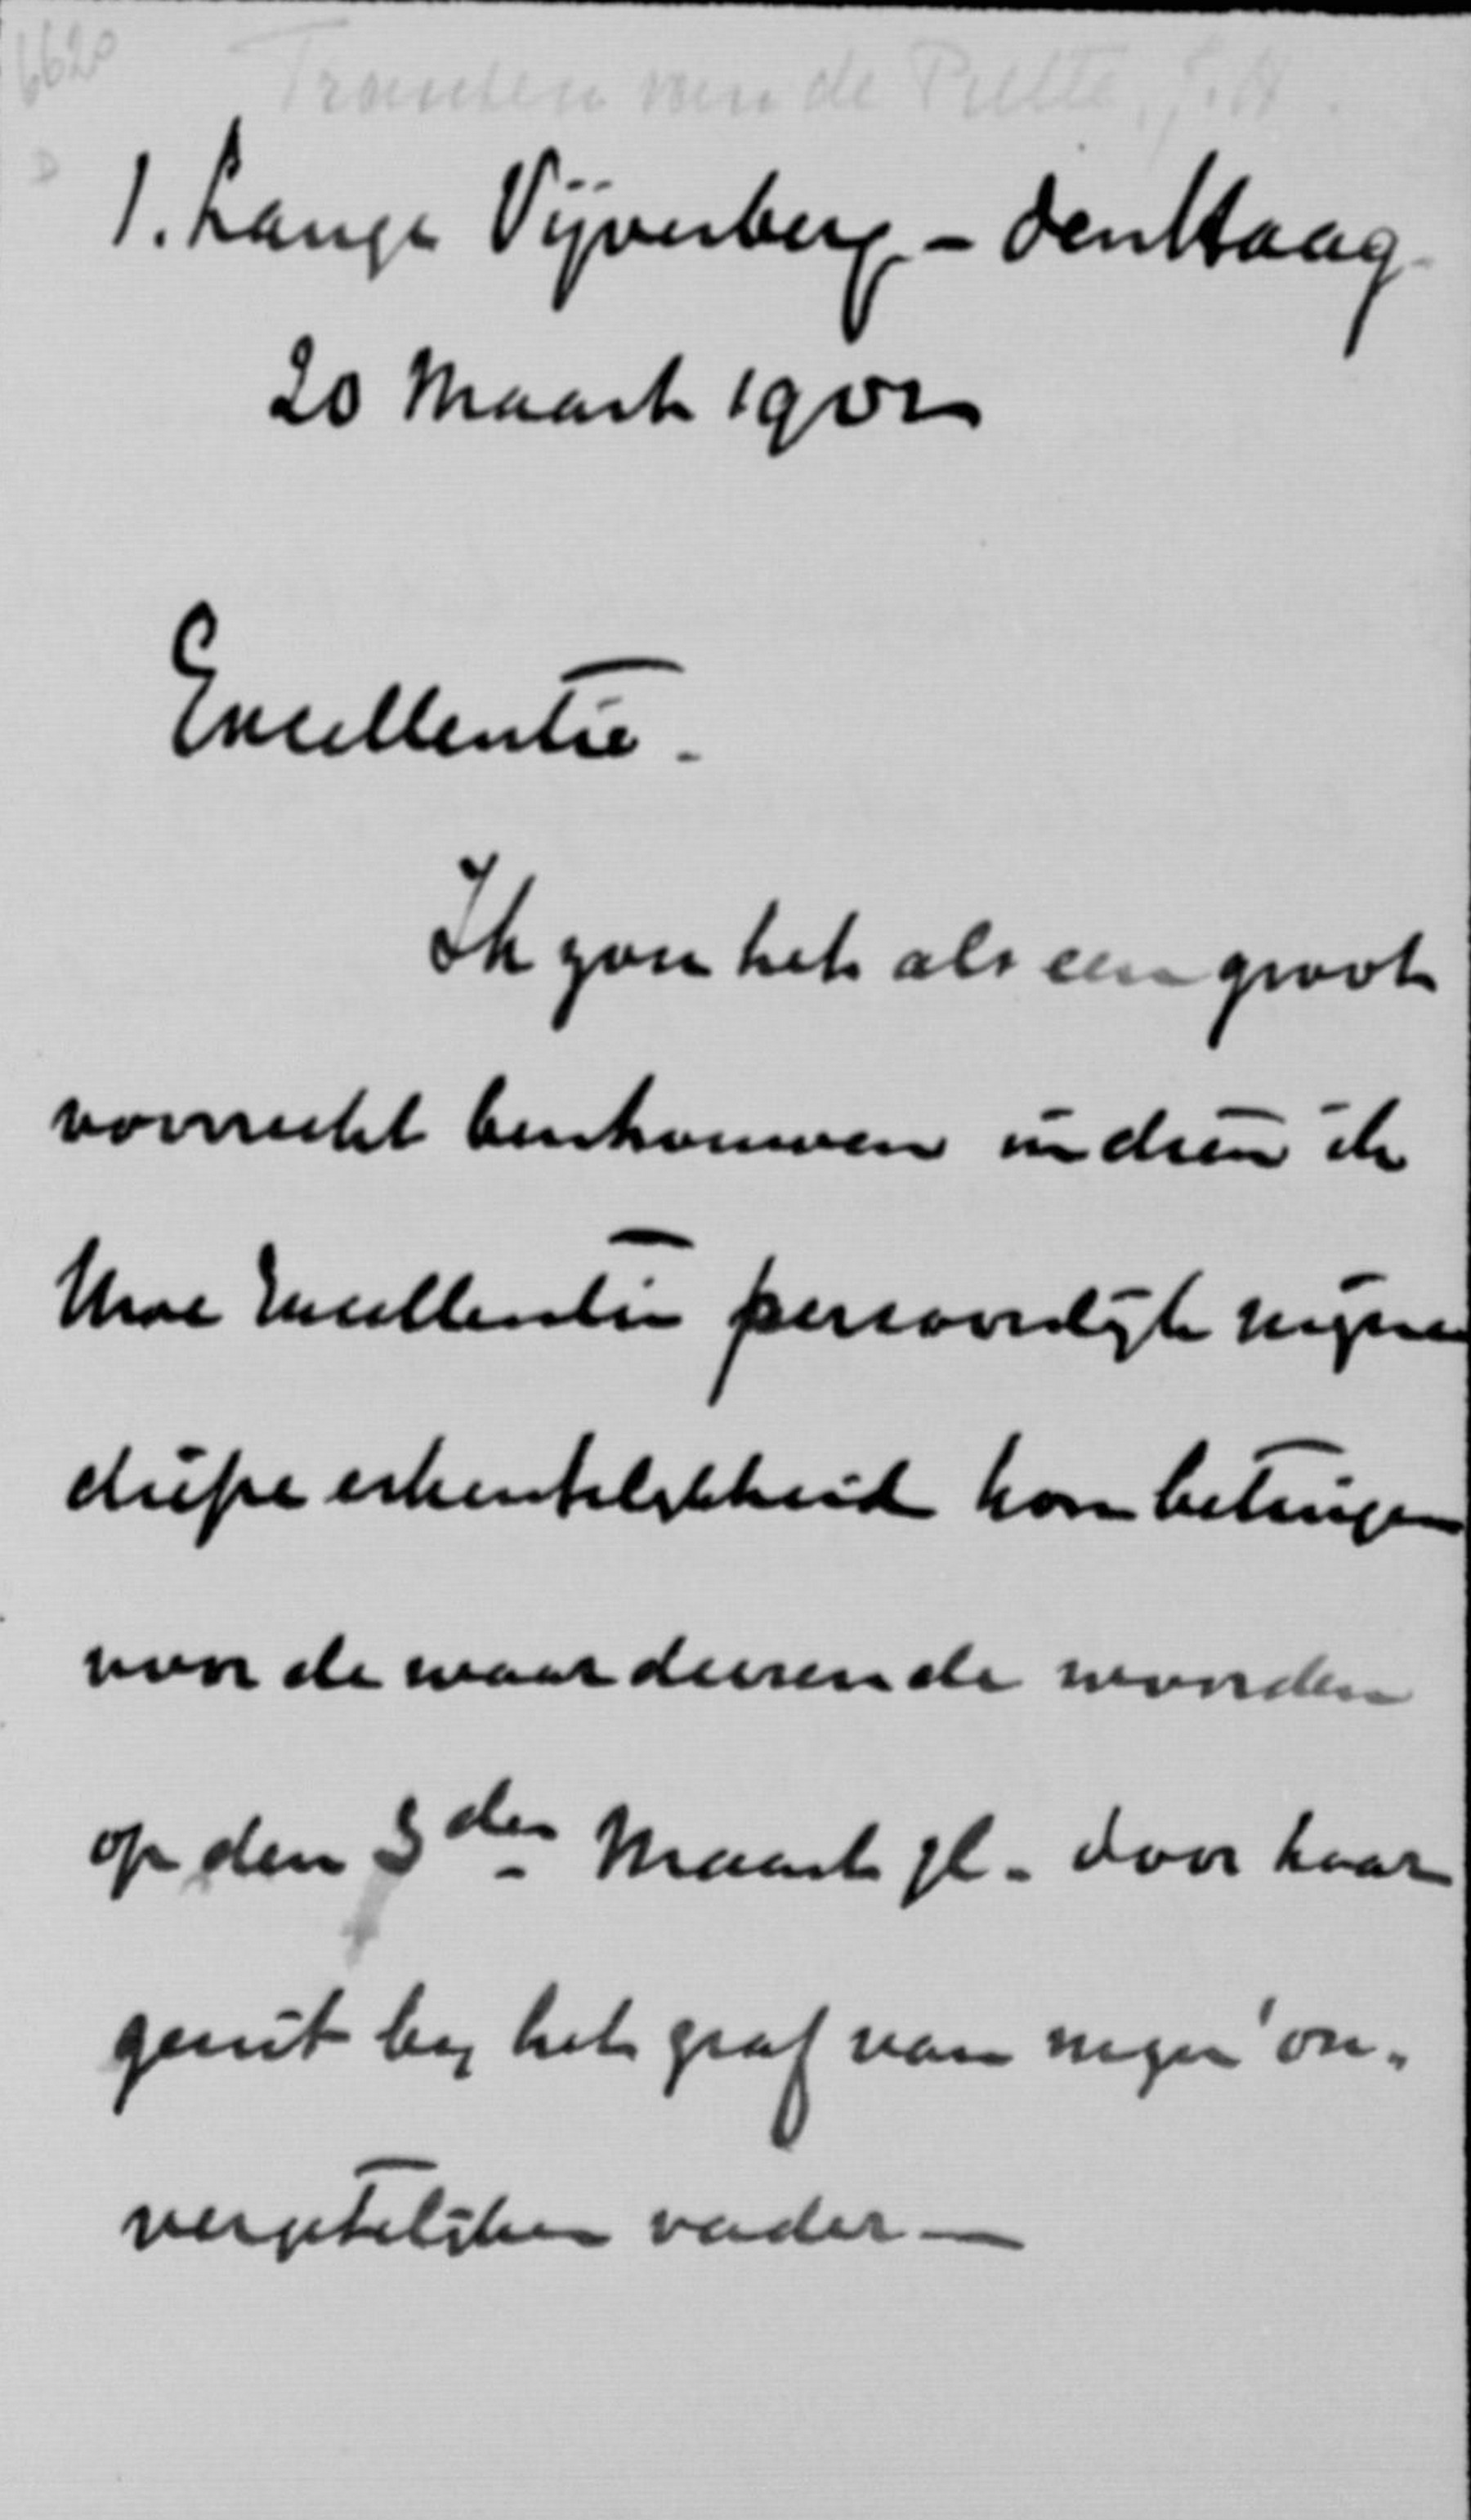 6620
Fransen van de Putte, J.H.
1. Lange Vijverberg - den Haag
20 Maart 1902
Excellentie.
Ik zou het als een groot
voorrecht beschouwen indien ik
Uwe Excellentie persoonlijk mijne
diepe erkentelijkheid kon betuigen
voor de waardeerende woorden
op den 5den Maart jl. door haar
geuit bij het graf van mijn on-
vergetelijken vader—